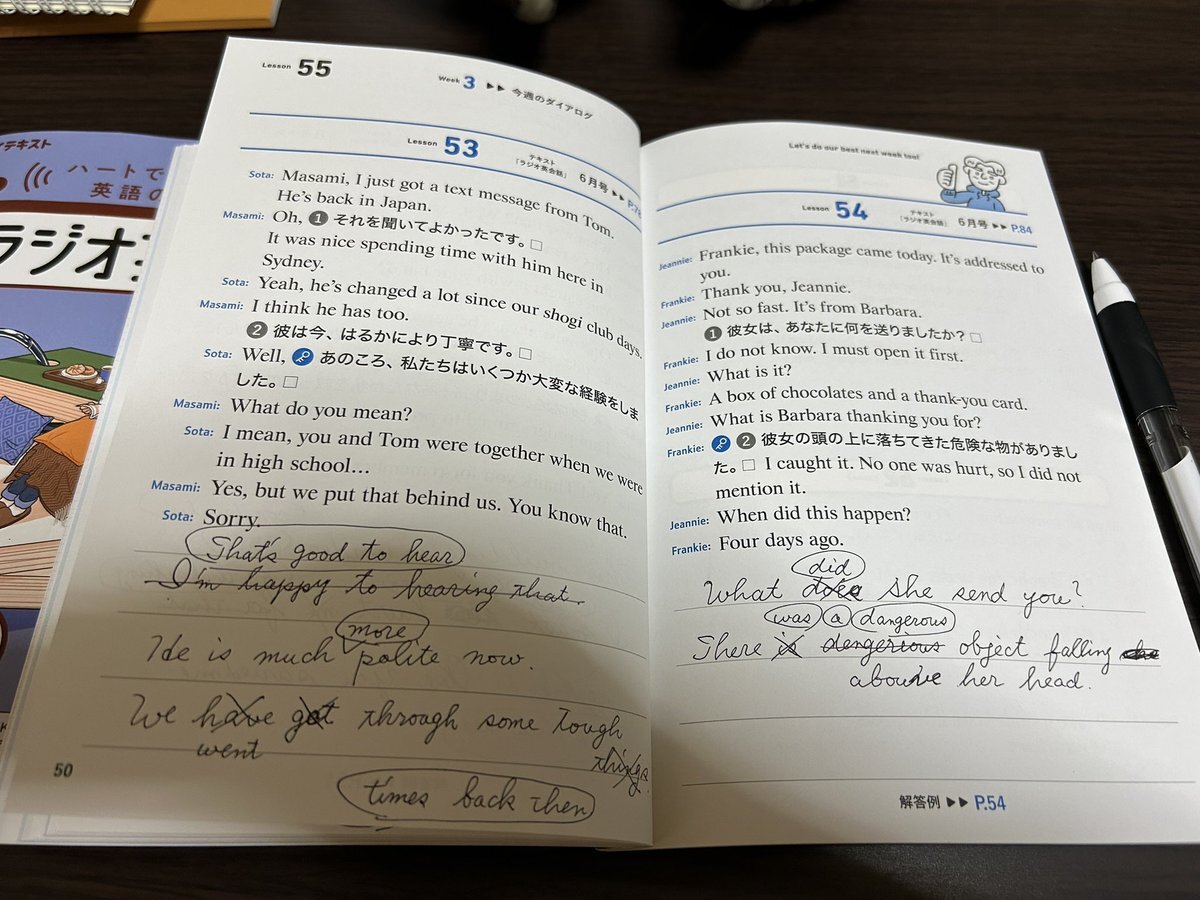 Lesson 55
Week 3 ▶▶ 今週のダイアログ
Lesson 53
テキスト
「ラジオ英会話」 6月号 ▶▶
Sota: Masami, I just got a text message from Tom.
He's back in Japan.
Masami: Oh, ❶ それを聞いてよかったです。□
It was nice spending time with him here in
Sydney.
Sota: Yeah, he's changed a lot since our shogi club days.
Masami: I think he has too.
❷ 彼は今、はるかにより丁寧です。□
Sota: Well, あのころ、私たちはいくつか大変な経験をしま
した。□
Masami: What do you mean?
Sota: I mean, you and Tom were together when we were
in high school...
Masami: Yes, but we put that behind us. You know that.
Sota: Sorry.
That's good to hear
I'm happy to hearing that.
more
He is much polite now.
We have got through some tough
went
things.
times back then
50
Let's do our best next week too!
Lesson 54
テキスト
「ラジオ英会話」 6月号 ▶▶ P.84
Jeannie: Frankie, this package came today. It's addressed to
you.
Frankie: Thank you, Jeannie.
Jeannie: Not so fast. It's from Barbara.
❶ 彼女は、あなたに何を送りましたか？□
Frankie: I do not know. I must open it first.
Jeannie: What is it?
Frankie: A box of chocolates and a thank-you card.
Jeannie: What is Barbara thanking you for?
Frankie: ❷ 彼女の頭の上に落ちてきた危険な物がありまし
た。□ I caught it. No one was hurt, so I did not
mention it.
Jeannie: When did this happen?
Frankie: Four days ago.
did
What does she send you?
was a dangerous
There is dengerious object falling
above her head.
解答例 ▶▶ P.54
テキスト
ハートで
英語の
ラジオ